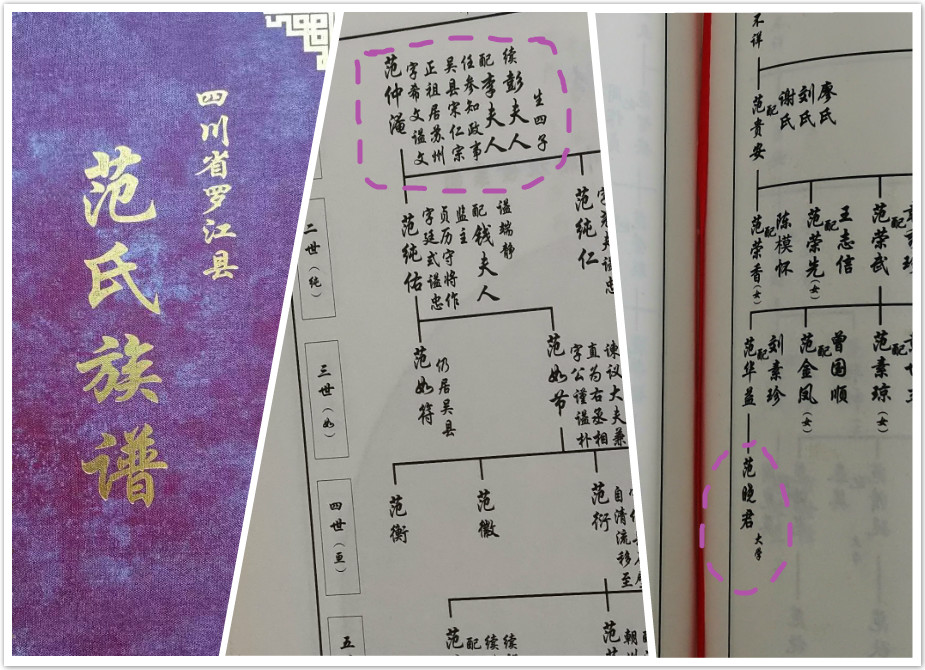 四川省罗江县
范氏族谱
范仲淹
字希文谥文
正祖居苏州
吴县宋仁宗
任参知政事
配李夫人
续彭夫人
生四子
二世（纯）
范纯佑
字廷式谥忠
贞历守将作
监主
配钱夫人
谥端静
范纯仁
三世（如）
范如符
仍居吴县
范如节
字公谨谥朴
直为右丞相
谏议大夫兼
四世（亘）
范衡
范徽
范衍
自清流移至
五
范
配
续
续
范
不详
范贵安
配
谢氏
刘氏
廖氏
范荣香（女）
配
陈模怀
范荣先（女）
配
王志信
范荣武
配
范华益
配
刘素珍
范金凤（女）
配
曾国顺
范素琼（女）
配
范晓君
大学